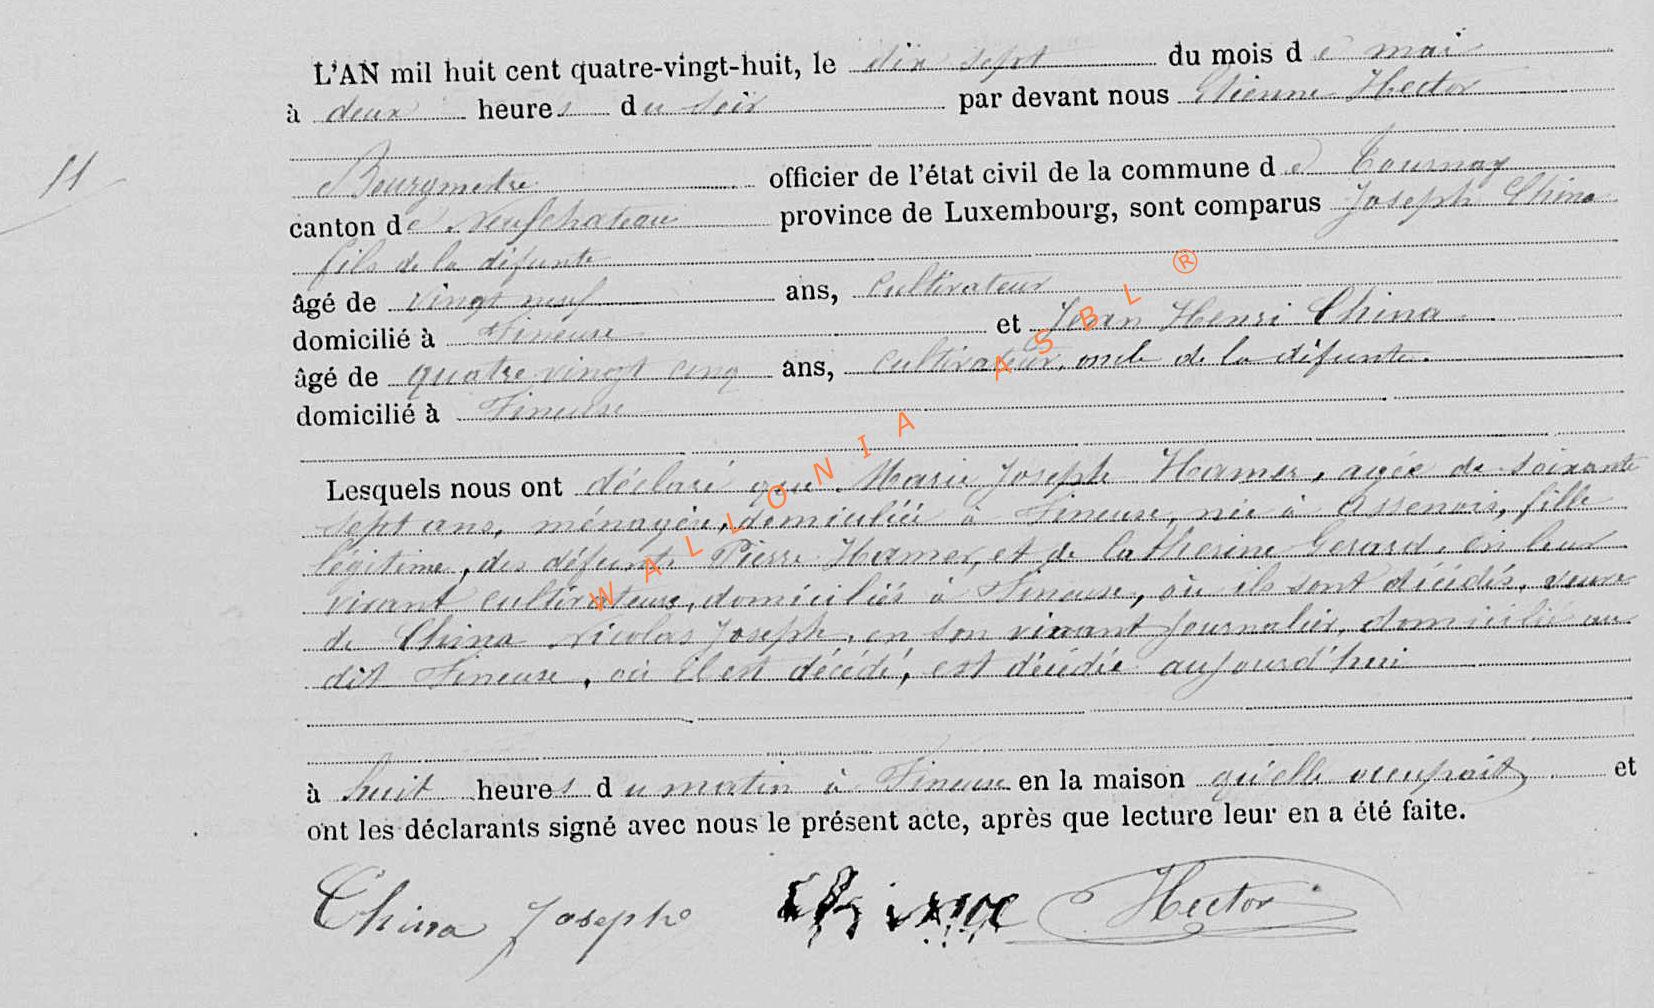 L'AN mil huit cent quatre-vingt-huit, le dix sept du mois de mai
à deux heures du soir par devant nous Etienne Hector
11
Bourgmestre officier de l'état civil de la commune de Tournay
canton de Neufchateau province de Luxembourg, sont comparus Joseph China
fils de la défunte
âgé de vingt neuf ans, cultivateur
domicilié à Tineuse et Jean Henri China
âgé de quatre vingt cinq ans, cultivateur, oncle de la défunte.
domicilié à Tineuse
Lesquels nous ont déclaré que Marie Joseph Hamer, agée de soixante
sept ans, ménagère, domiciliée à Tineuse, née à Assenois, fille
légitime, des défunts Pierre Hamer, et de Catherine Gerard, en leur
vivant cultivateurs, domiciliés à Tineuse, où ils sont décédés, veuve
de China Nicolas Joseph, en son vivant journalier, domicilié au
dit Tineuse, où il est décédé, est décédée aujourd'hui
à huit heures du matin à Tineuse en la maison qu'elle occupait, et
ont les déclarants signé avec nous le présent acte, après que lecture leur en a été faite.
China Joseph Hector
WALLONIA ASBL ®